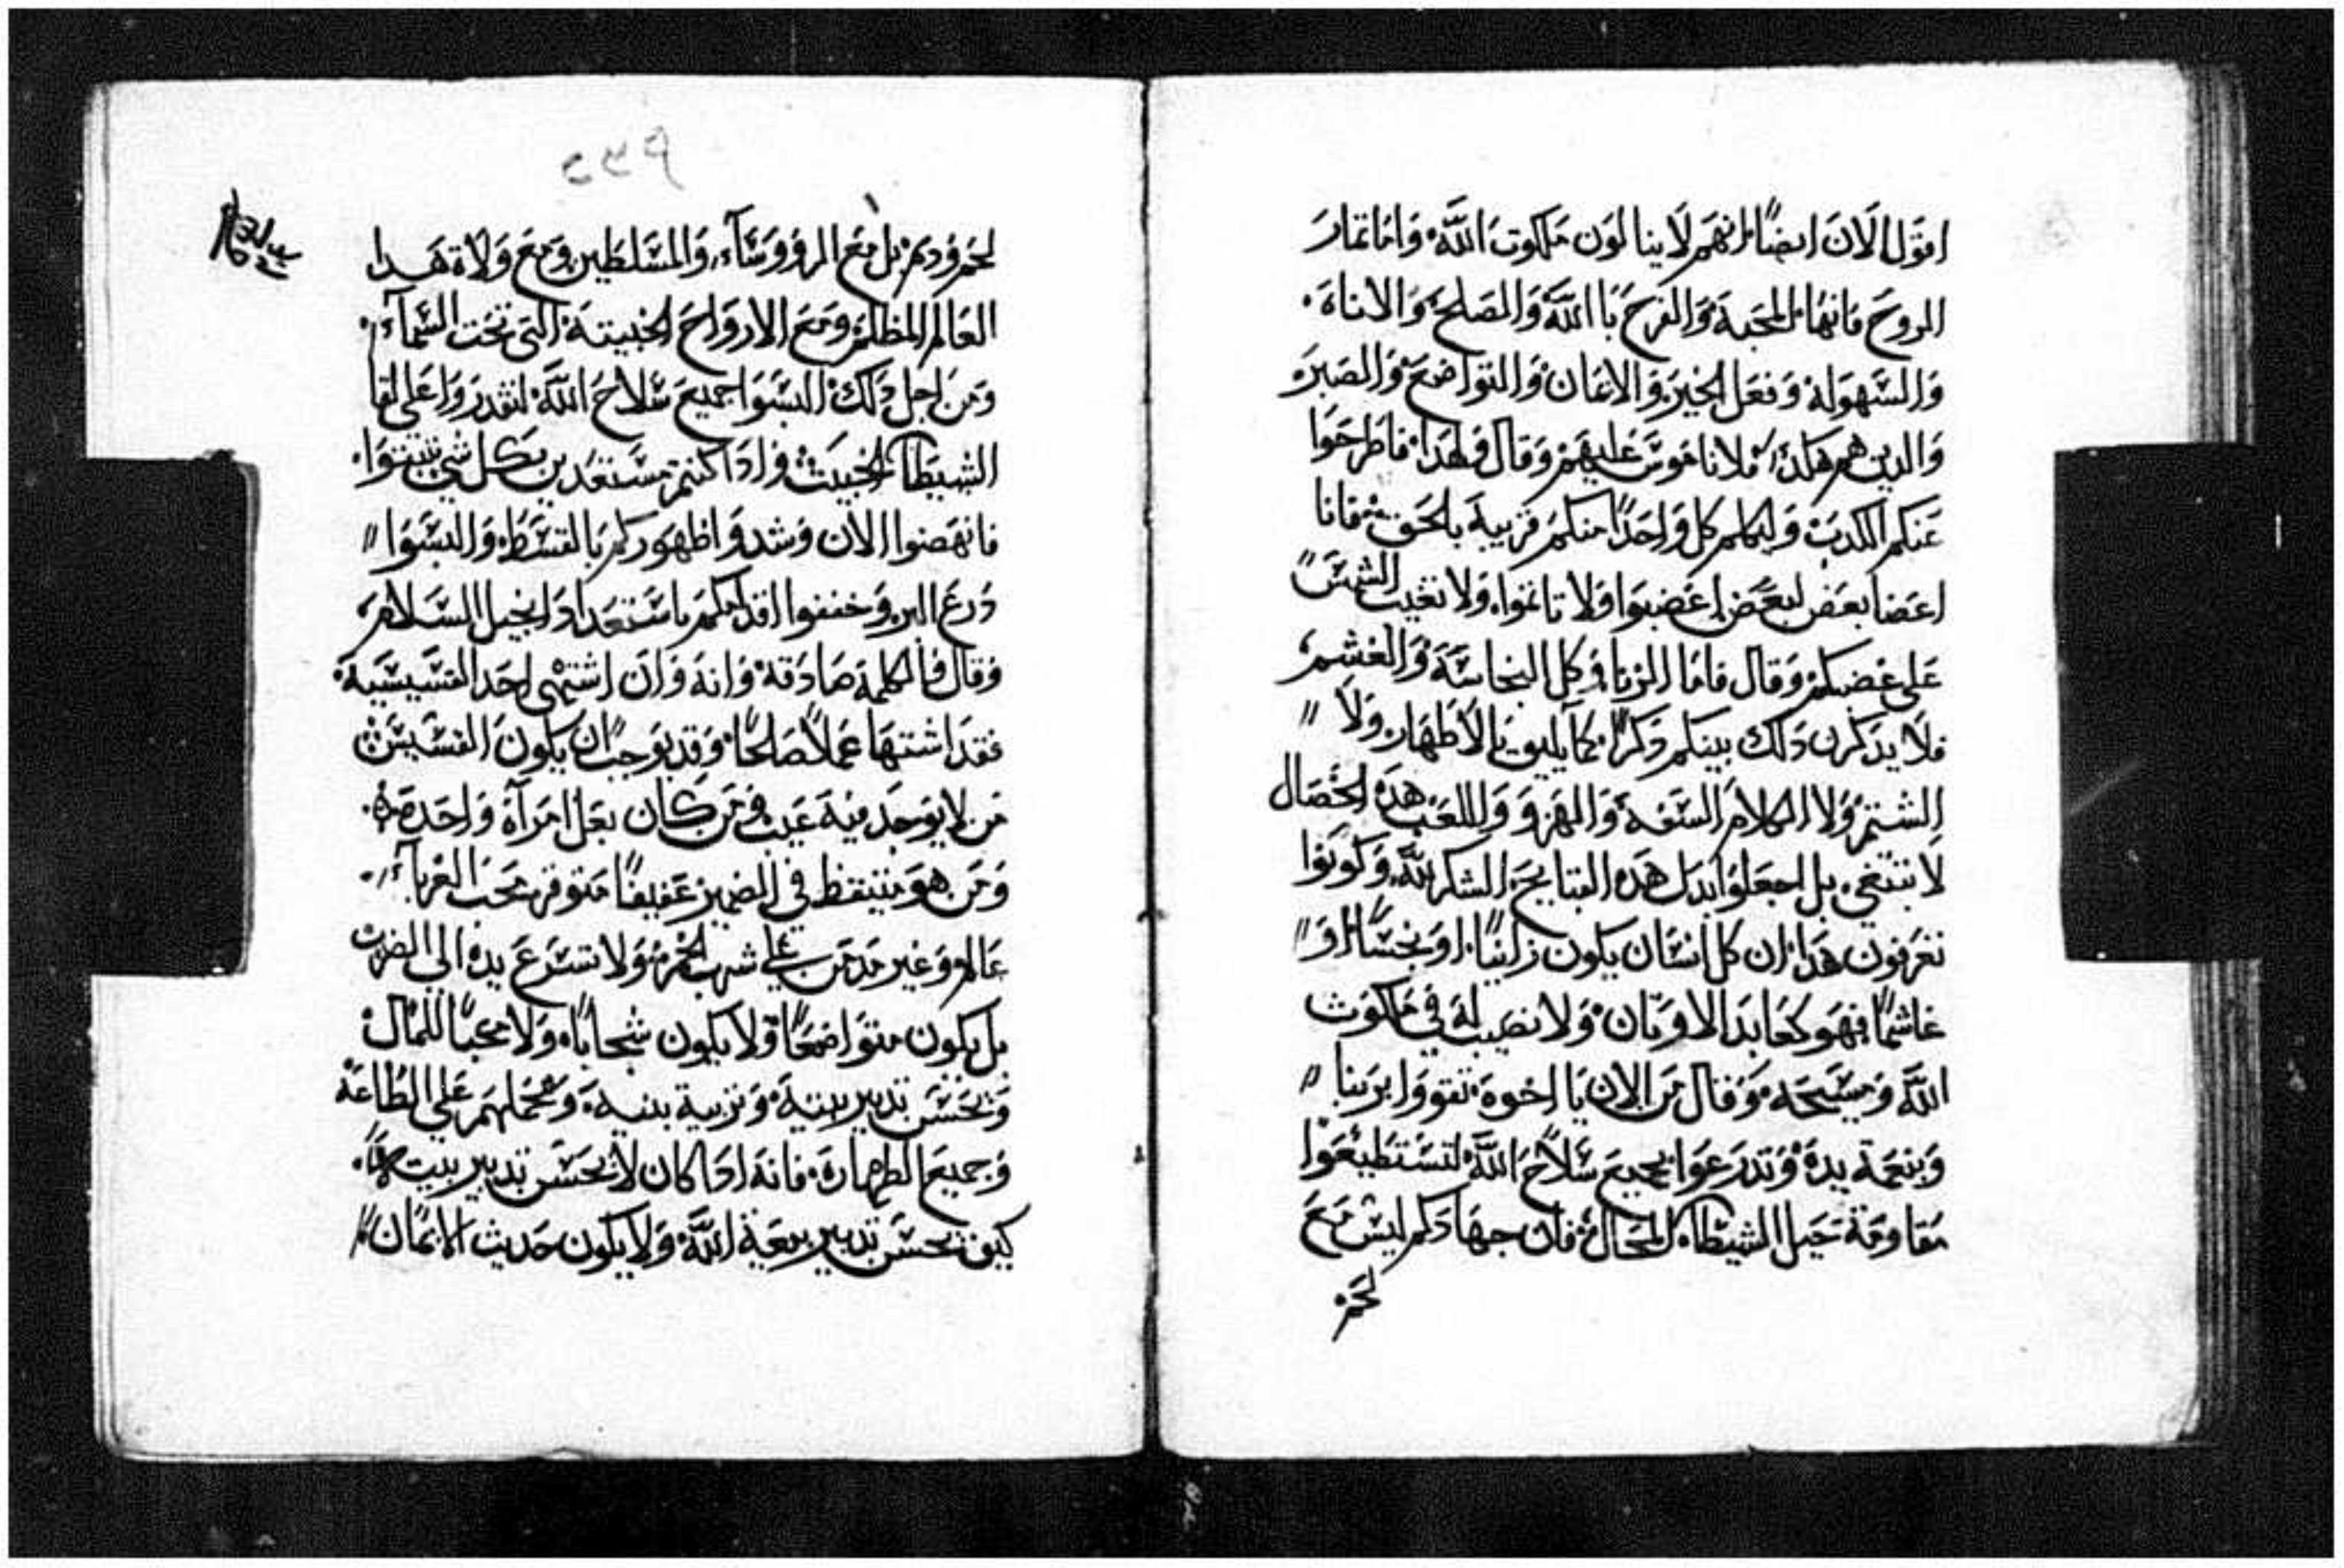 اقول الان ايضًا انهم لا ينالون ملكوت الله، واما ثمار
الروح فانها المحبة والفرح با الله والصلح والاناة.
والسهولة وفعل الخير والايمان والتواضع والصبر
والدين هم هكدا فلا ناموس عليهم وقال ولهدا فاطرحوا
عنكم الكدب وليكلم كل واحدًا منكم قريبه بالحق فاننا
اعضا بعض لبعض اغضبوا ولا تاثموا، ولا تغيب الشمس
على غضبكم وقال فاما الزنا وكل النجاسة والغشم
فلا يدكرن دلك بينكم دكرًا كما يليق بالاطهار ولا
الشتم ولا الكلام السفه والهزو واللعب هده الخصال
لا تنبغي بل اجعلوا بدل هده القبايح الشكر لله، وكونوا
تعرفون هدا ان كل انسان يكون زانيًا او نجسًا او
غاشمًا فهو كعابد الاوتان ولا نصيب له في ملكوت
الله ومسيحه وقال من الان يا اخوة تقووا بربنا
وبنعمة يده وتدرعوا بجميع سلاح الله لتستطيعوا
مقاومة حيل الشيطان المحال فان جهادكم ليس مع
لحم
لحم ودم بل مع الروووساء، والمسلطين ومع ولاة هدا
العالم المظلم ومع الارواح الخبيتة التي تحت السماء.
ومن اجل دلك البسوا جميع سلاح الله لتقدروا على لقا
الشيطان الخبيث وادا كنتم مستعدين بكل شي تتبتوا.
فانهضوا الان وشدوا ظهوركم بالقسط، والبسوا
درع البر، وخففوا اقدامكم باستعداد انجيل السلام
وقال فالكلمة صادقة، وانه وان اشتهى احد القسيسية
فقد اشتها عملاً صالحًا، وقد يوجب ان يكون القسيس
من لا يوجد فيه عيب ومن كان بعل امراة واحدة.
ومن هو متيقظ في الضمير عفيفًا متوقر محب الغربا
عالم وغير مدمن على شرب الخمر، ولا تسرع يده الى الضرب
بل يكون متواضعًا ولا يكون شحابًا، ولا محبًا للمال
ويحسن تدبير بيته وتربية بنيه، ويحملهم على الطاعة
وجميع الطهارة، فانه ادا كان لا يحسن تدبير بيت
كيف يحسن تدبير بيعة الله ولا يكون حديث الايمان